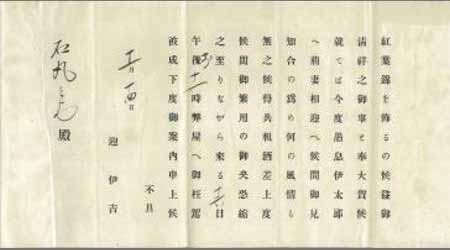 紅葉錦を飾るの候益御
清祥之御事と奉大賀候
就ては今度愚息伊太郎
へ荊妻相迎へ候間御見
知合の為め何の風情も
無之候得共粗酒差上度
候間御繁用の御央恐縮
之至りながら来る日
午後時弊屋へ御枉駕
被成下度御案内申上候
不具
月日
迎伊吉
石丸殿